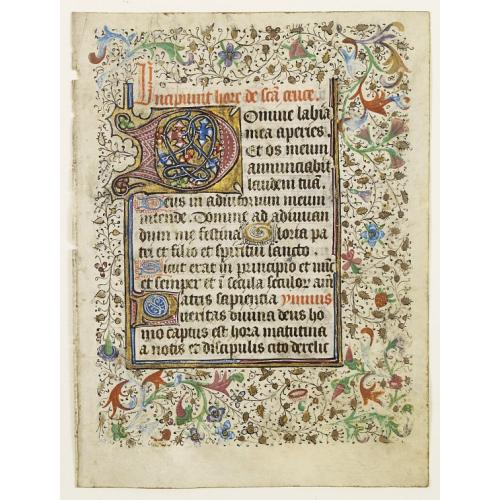 Incipiunt hore de sc̄a cruce.
Domine labia
mea aperies.
Et os meum
annunciabit
laudem tuā.
Deus in adiutorium meum
intende. Domine ad adiuuan
dum me festina Gloria pa
tri et filio et spiritui sancto.
Sicut erat in principio et nūc
et semper et ī secula seculor am̄
Patris sapientia ymnus
ueritas diuina deus ho
mo captus est hora matutina
a notis et discipulis cito derelic